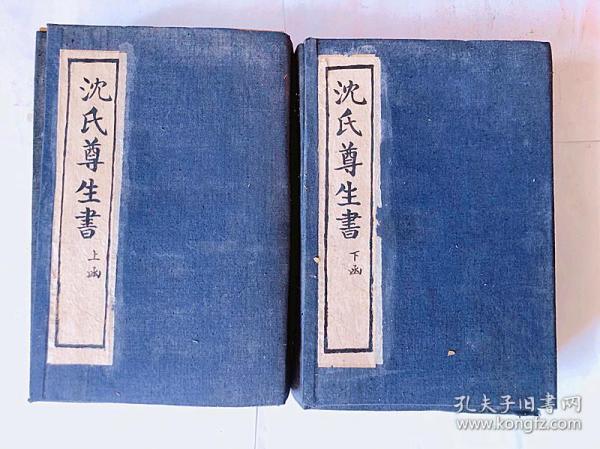 沈氏尊生書
上函
沈氏尊生書
下函
孔夫子旧书网
www.kongfz.com